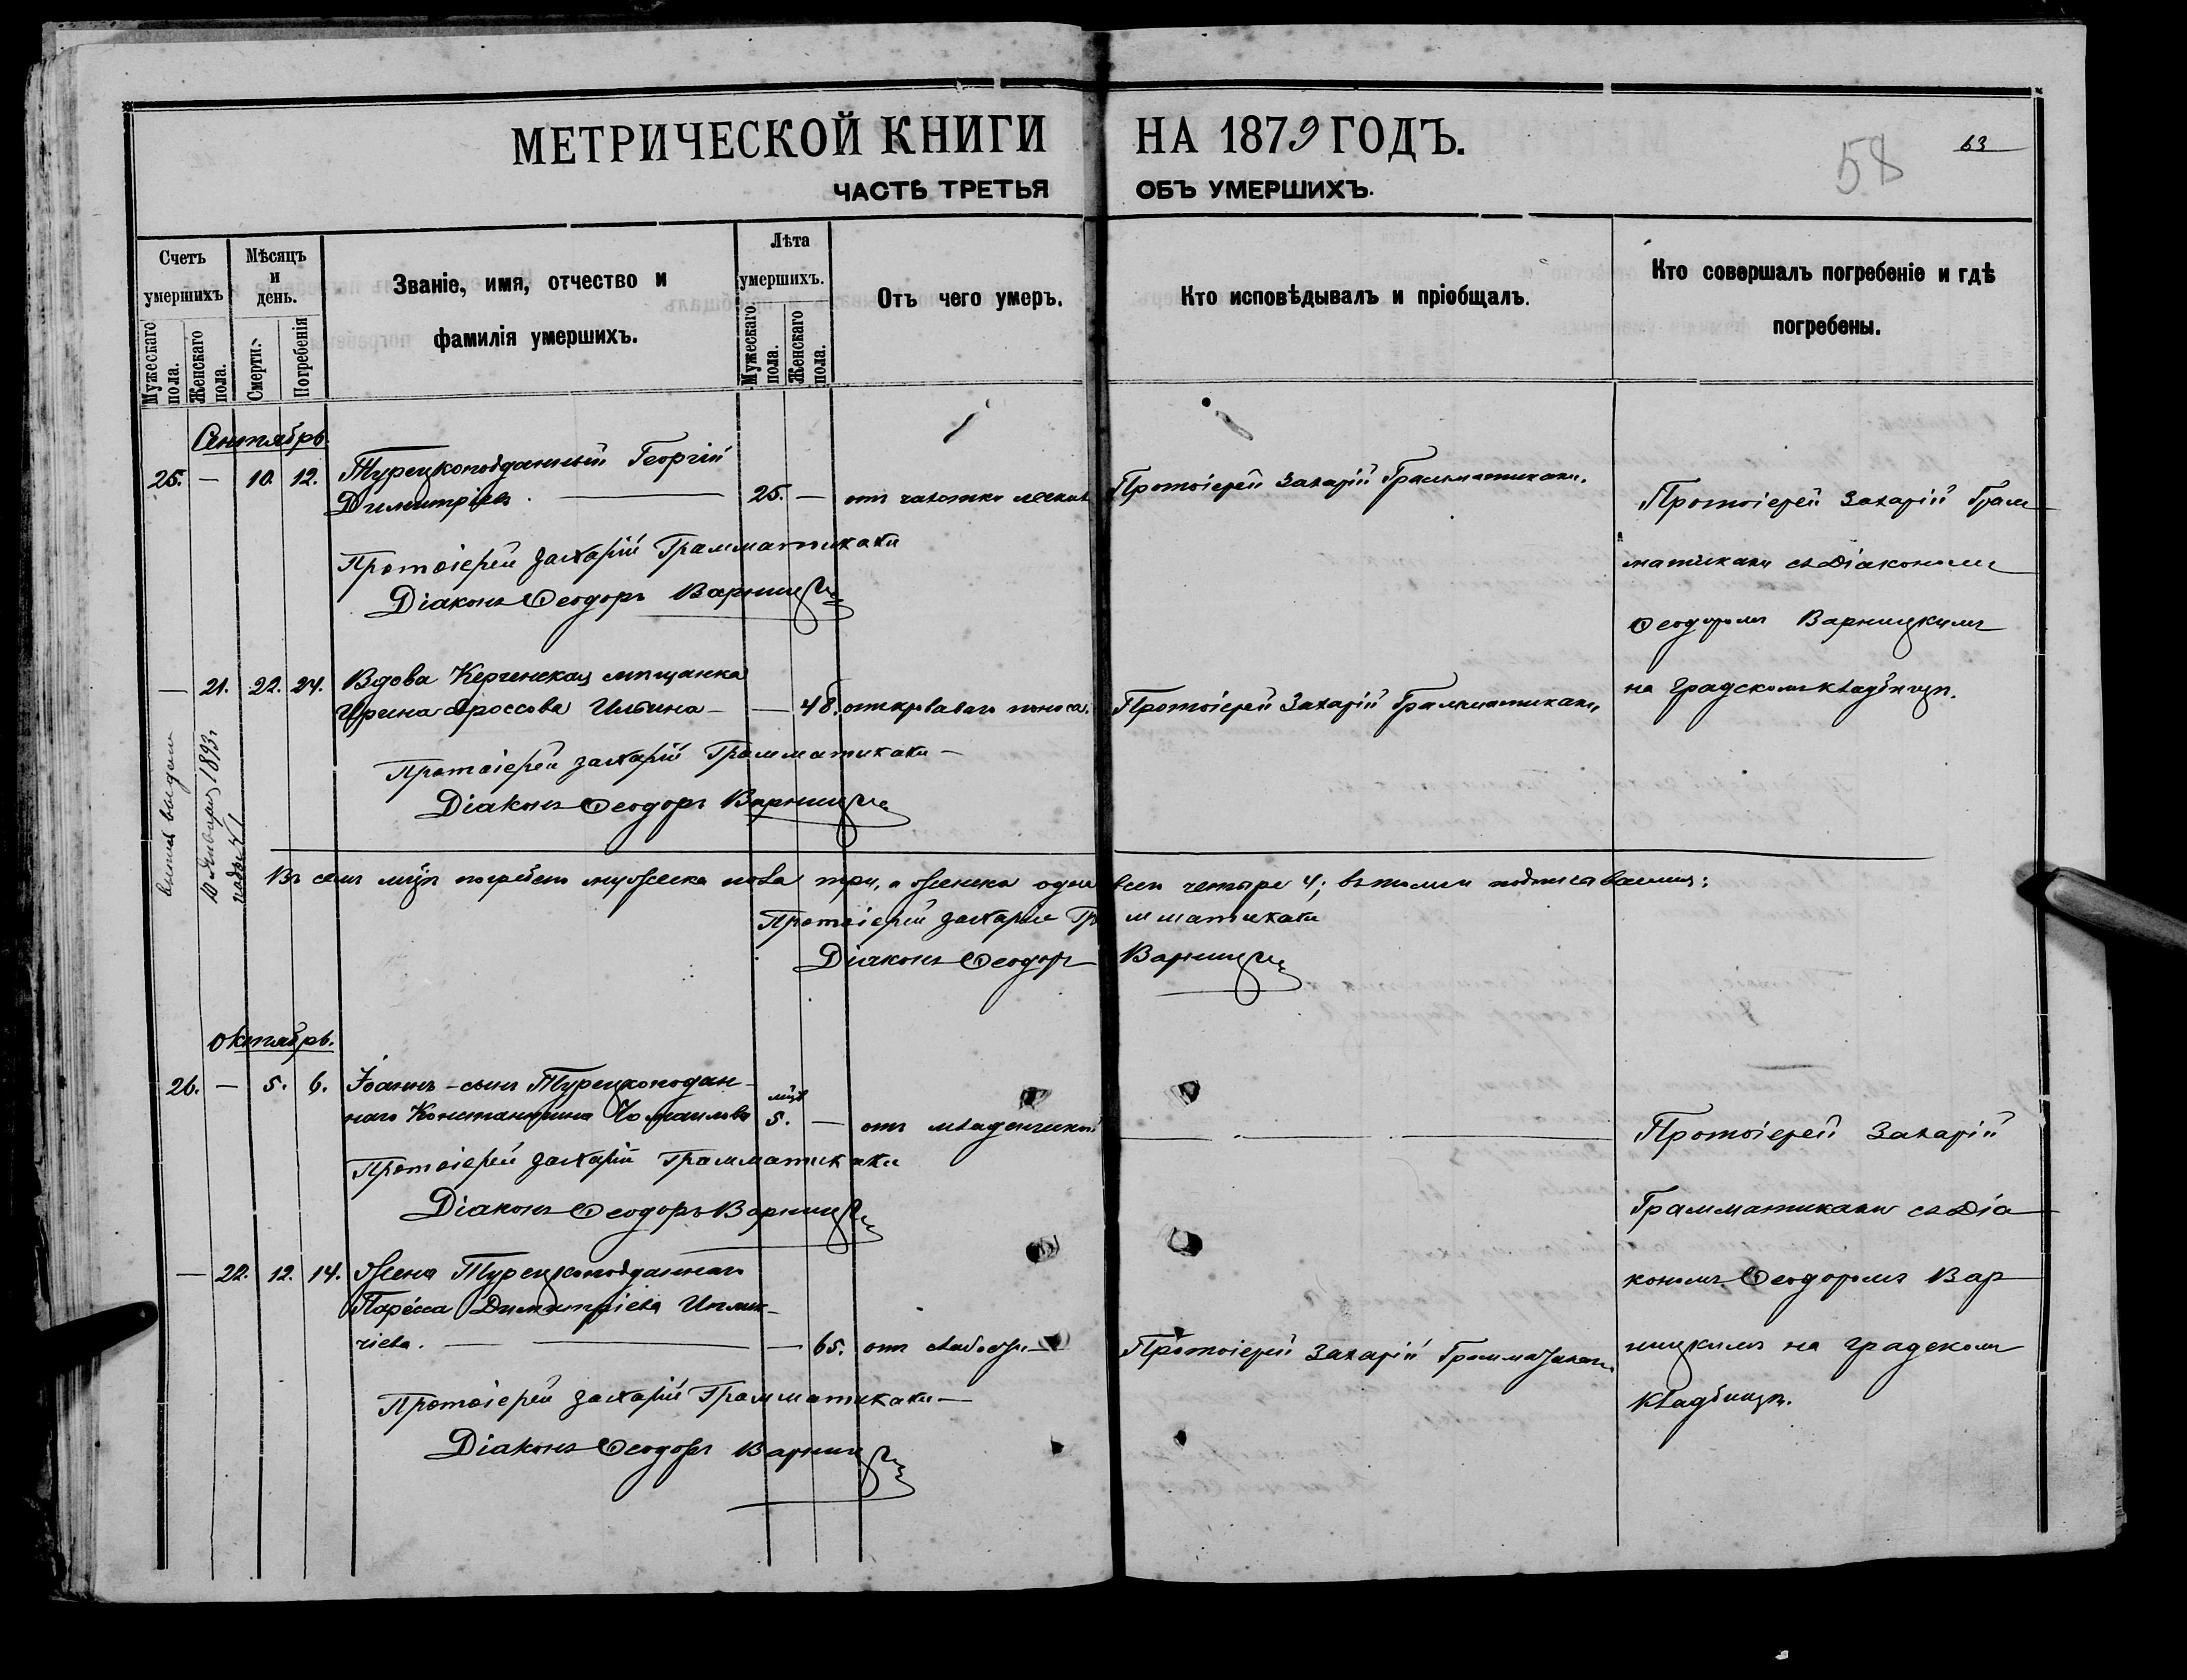 МЕТРИЧЕСКОЙ КНИГИ НА 1879 ГОДЪ.
58
63
ЧАСТЬ ТРЕТЬЯ ОБЪ УМЕРШИХЪ.
Счетъ умершихъ
Мужескаго пола.
Женскаго пола.
Мѣсяцъ и день.
Смерти.
Погребенія
Званіе, имя, отчество и
фамилія умершихъ.
Лѣта умершихъ.
Мужескаго пола.
Женскаго пола.
Отъ чего умеръ.
Кто исповѣдывалъ и пріобщалъ.
Кто совершалъ погребеніе и гдѣ
погребены.
Сентябрь.
25. — 10. 12. Турецкоподданный Георгій
Димитріевъ. — 25. — отъ чахотки легкихъ Протоіерей Захарій Грамматикаки.
Протоіерей Захарій Грам
матикаки съ Діакономъ
Ѳеодоромъ Варницкимъ
на градскомъ кладбищѣ.
Протоіерей Захарій Грамматикаки
Діаконъ Ѳеодоръ Варницкій
— 21. 22. 24. Вдова Керченская мѣщанка
Ирина Ильина — — 48. отъ кроваваго поноса. Протоіерей Захарій Грамматикаки
Протоіерей Захарій Грамматикаки —
Діаконъ Ѳеодоръ Варницкій
выдана
10 Января 1893 г.
Въ семъ мцѣ погребено мужеска пола три, а женска одна всего четыре 4; въ томъ и подписываемся:
Протоіерей Захарій Грамматикаки
Діаконъ Ѳеодоръ Варницкій
Октябрь.
26. — 5. 6. Іоаннъ — сынъ Турецкоподдан-
наго Константина мцѣ 5. — отъ младенческой — —
Протоіерей Захарій
Грамматикаки съ Діа
кономъ Ѳеодоромъ Вар
ницкимъ на градскомъ
кладбищѣ.
Протоіерей Захарій Грамматикаки
Діаконъ Ѳеодоръ Варницкій
— 22. 12. 14. Жена Турецкоподданнаго
Димитріева
— 65. отъ слабости — Протоіерей Захарій Грамматикаки
Протоіерей Захарій Грамматикаки —
Діаконъ Ѳеодоръ Варницкій